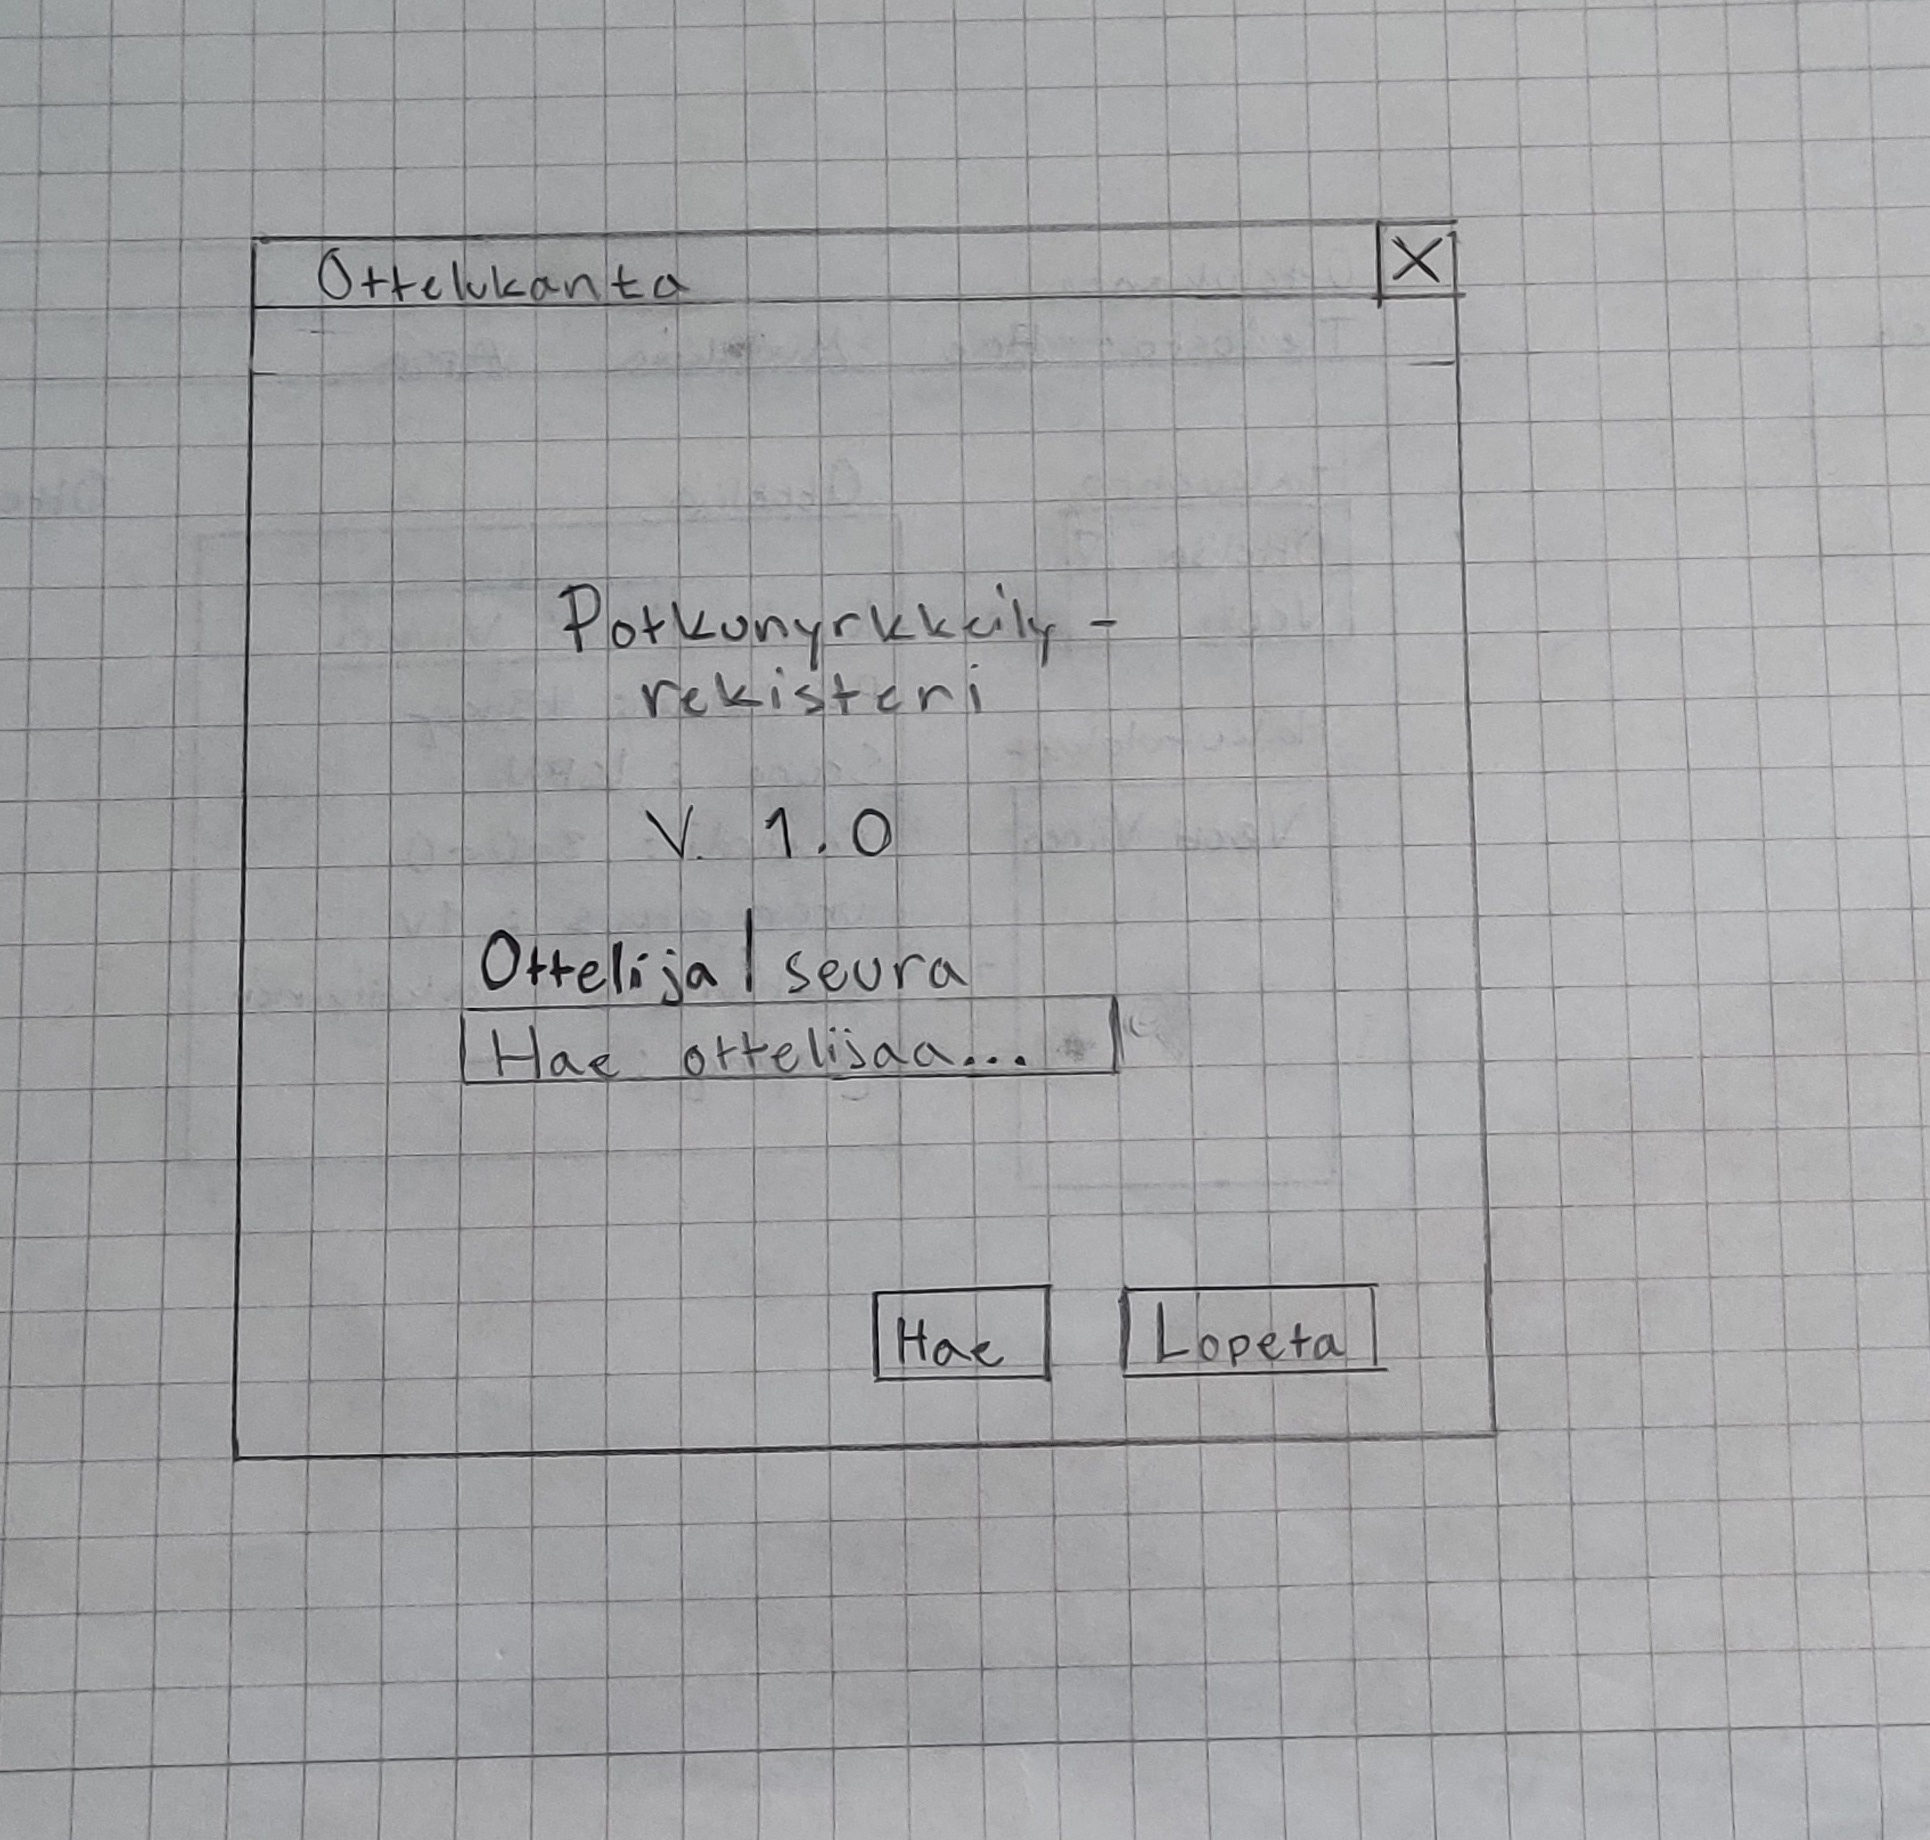 Ottelukanta X
Potkunyrkkeily-
rekisteri
V. 1.0
Ottelija | seura
Hae ottelijaa...
Hae Lopeta